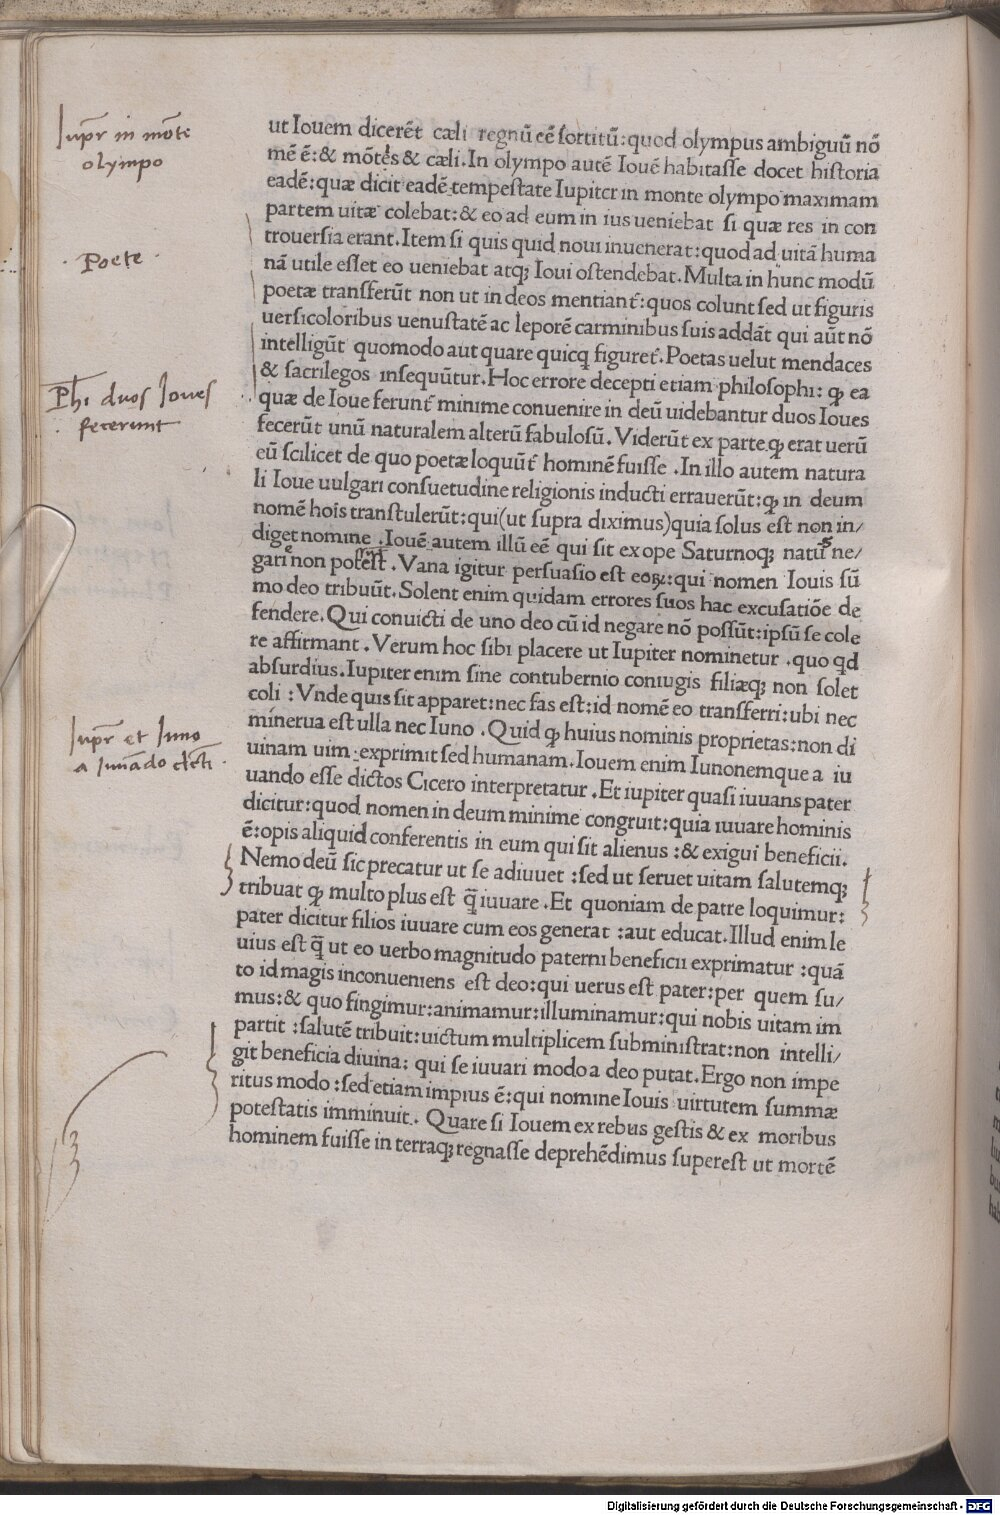 Iupr̄ in mōte
olympo
· Poete ·
Phi duos Ioues
fecerunt
Iupr̄ et Iuno
a Iuuādo dicti
ut Iouem dicerēt cæli regnū eē sortitū:quod olympus ambiguū nō
mē ē:& mōtes & cæli.In olympo autē Iouē habitasse docet historia
eadē:quæ dicit eadē tempestate Iupiter in monte olympo maximam
partem uitæ colebat:& eo ad eum in ius ueniebat si quæ res in con
trouersia erant.Item si quis quid noui inuenerat:quod ad uitā huma
nā utile esset eo ueniebat atq; Ioui ostendebat.Multa in hunc modū
poetæ transferūt non ut in deos mentiant̄:quos colunt sed ut figuris
uersicoloribus uenustatē ac leporē carminibus suis addāt qui aūt nō
intelligūt quomodo aut quare quicq figuret̄.Poetas uelut mendaces
& sacrilegos insequūtur.Hoc errore decepti etiam philosophi: ꝙ ea
quæ de Ioue ferunt̄ minime conuenire in deū uidebantur duos Ioues
fecerūt unū naturalem alterū fabulosū.Viderūt ex parte ꝙ erat uerū
eū scilicet de quo poetæ loquūt̄ hominē fuisse .In illo autem natura
li Ioue uulgari consuetudine religionis inducti errauerūt:ꝙ in deum
nomē hois transtulerūt:qui(ut supra diximus)quia solus est non in/
diget nomine .Iouē autem illū eē qui sit ex ope Saturnoq; natū ne/
gari non potest .Vana igitur persuasio est eoꝝ:qui nomen Iouis sū
mo deo tribuūt.Solent enim quidam errores suos hac excusatiōe de
fendere.Qui conuicti de uno deo cū id negare nō possūt:ipsū se cole
re affirmant .Verum hoc sibi placere ut Iupiter nominetur .quo qd
absurdius.Iupiter enim sine contubernio coniugis filiæq; non solet
coli :Vnde quis sit apparet:nec fas est:id nomē eo transferri:ubi nec
minerua est ulla nec Iuno .Quid ꝙ huius nominis proprietas:non di
uinam uim exprimit sed humanam.Iouem enim Iunonemque a iu
uando esse dictos Cicero interpretatur .Et iupiter quasi iuuans pater
dicitur:quod nomen in deum minime congruit:quia iuuare hominis
ē:opis aliquid conferentis in eum qui sit alienus :& exigui beneficii.
Nemo deū sic precatur ut se adiuuet :sed ut seruet uitam salutemq;
tribuat ꝙ multo plus est q̄ iuuare .Et quoniam de patre loquimur:
pater dicitur filios iuuare cum eos generat :aut educat.Illud enim le
uius est q̄ ut eo uerbo magnitudo paterni beneficii exprimatur :quā
to id magis inconueniens est deo:qui uerus est pater:per quem su/
mus:& quo fingimur:animamur:illuminamur:qui nobis uitam im
partit :salutē tribuit:uictum multiplicem subministrat:non intelli/
git beneficia diuina: qui se iuuari modo a deo putat.Ergo non impe
ritus modo :sed etiam impius ē:qui nomine Iouis uirtutem summæ
potestatis imminuit. Quare si Iouem ex rebus gestis & ex moribus
hominem fuisse in terraq; regnasse deprehēdimus superest ut mortē
Digitalisierung gefördert durch die Deutsche Forschungsgemeinschaft - DFG